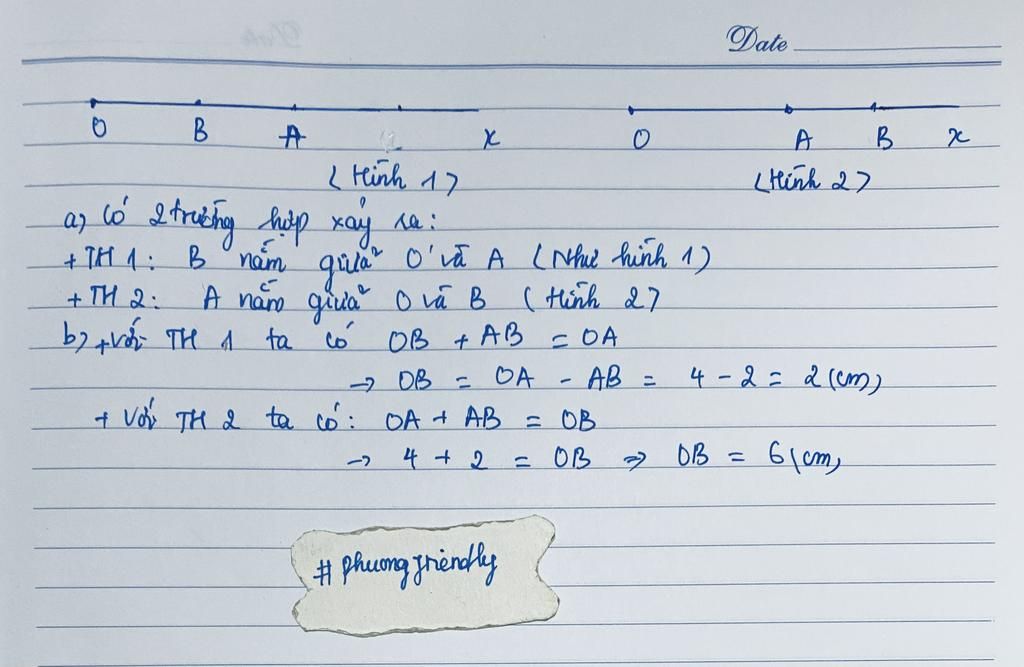 Date
O B A x O A B x
(Hình 1) (Hình 2)
a) Có 2 trường hợp xảy ra:
+ TH 1: B nằm giữa O và A (Như hình 1)
+ TH 2: A nằm giữa O và B (Hình 2)
b) + Với TH 1 ta có OB + AB = OA
→ OB = OA - AB = 4 - 2 = 2 (cm)
+ Với TH 2 ta có: OA + AB = OB
→ 4 + 2 = OB => OB = 6 (cm)
# phuong friendly